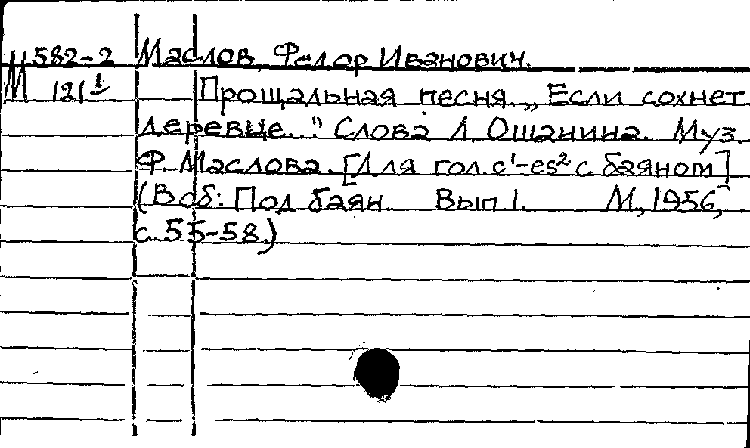 М 582-2 Маслов, Федор Иванович.
М 121 1 Прощальная песня. „Если сохнет
деревце.." Слова Л. Ошанина. Муз.
Ф. Маслова. [Для гол. c¹-es² с баяном]
(В сб: Под баян. Вып 1. М, 1956,
с. 55-58.)